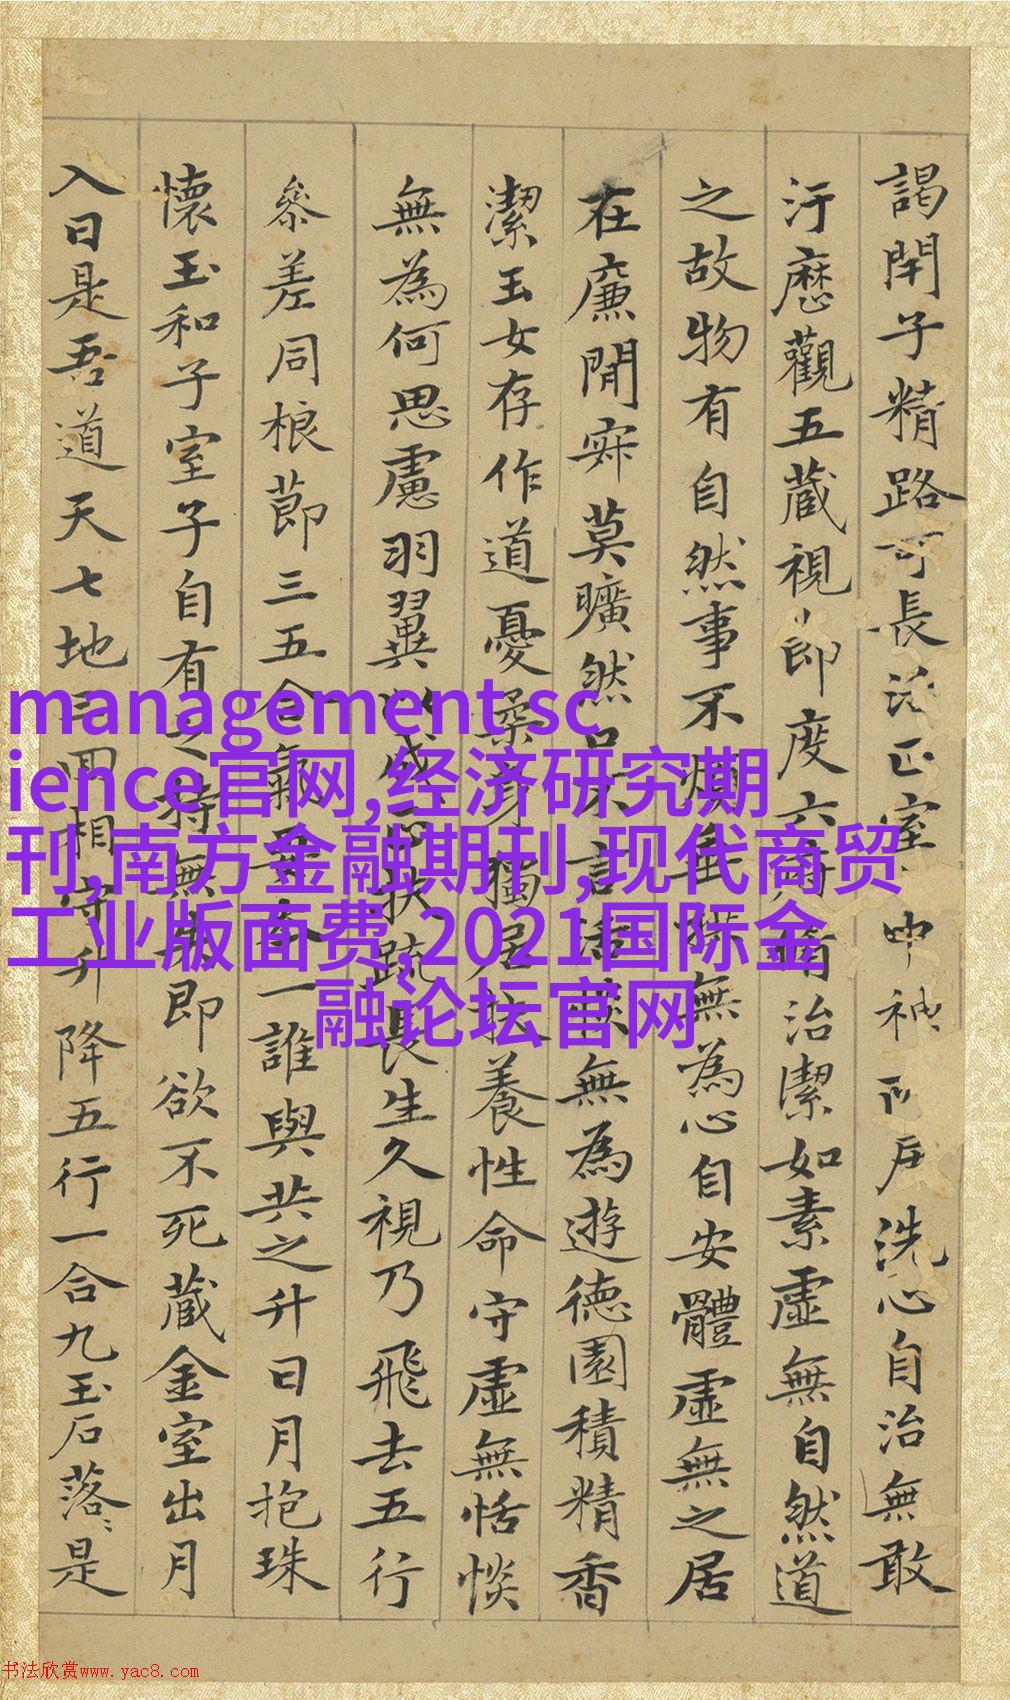 謁閇子精路可長活正室
中神
戶洗心自治無敢
汙歷觀五藏視
節度六府脩治潔如素虛無自然道
之故物有自然事不煩垂拱無為心自安體虛無之居
在廉閒寂莫曠然口不言
無為遊德園積精香
潔玉女存作道憂柔身獨居扶養性命守虛無恬惔
無為何思慮羽翼以成正扶疏長生久視乃飛去五行
參差同根節三五合氣要本一誰與共之升日月抱珠
懷玉和子室子自有之持無失即欲不死藏金室出月
入日是吾道天七地三回相守升降五行一合九玉石落〻是
management sc
ience官网,经济研究期
刊,南方金融期刊,现代商贸
工业版面费,2021国际金
融论坛官网
书法欣赏www.yac8.com